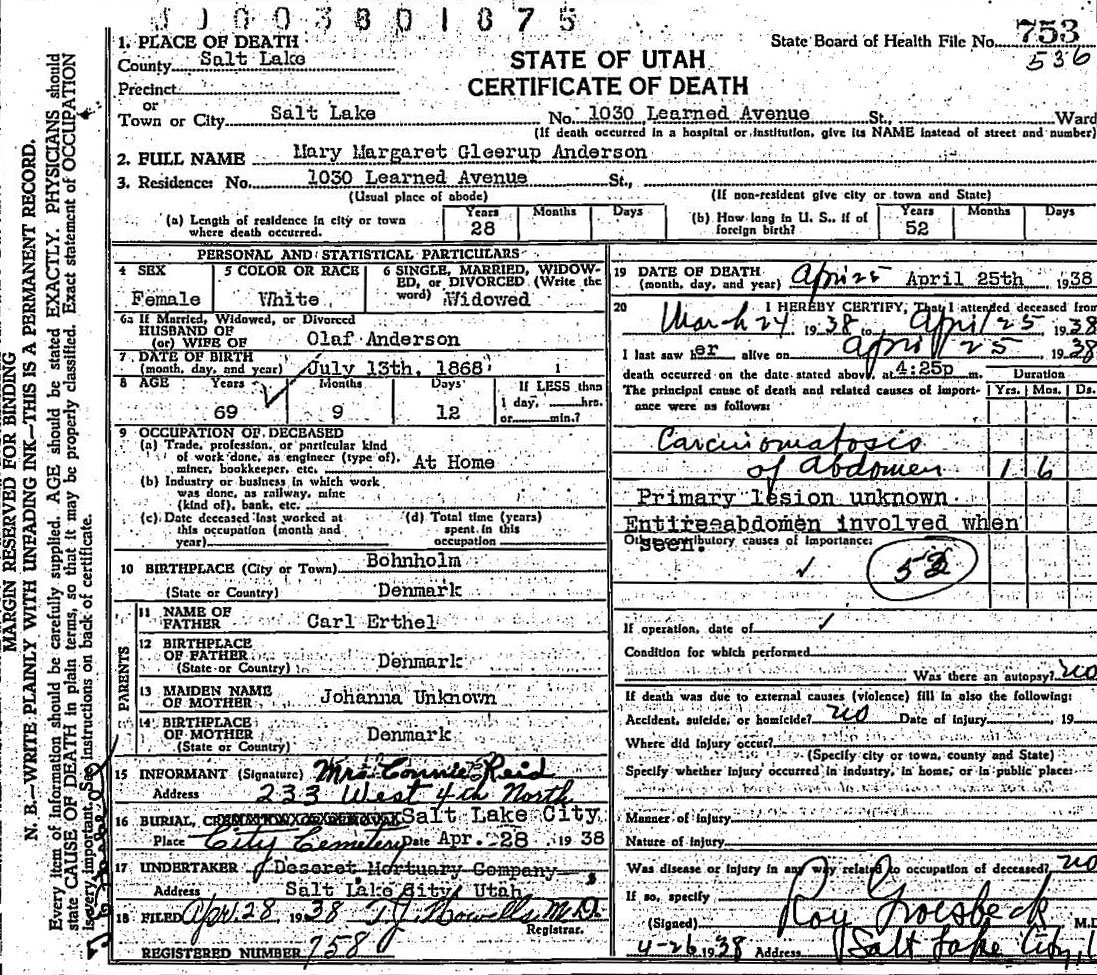 J J 0 0 3 8 0 1 8 7 5
1. PLACE OF DEATH
County Salt Lake
Precinct
or
Town or City Salt Lake
State Board of Health File No. 753
536
STATE OF UTAH
CERTIFICATE OF DEATH
No. 1030 Learned Avenue St., Ward
(If death occurred in a hospital or institution, give its NAME instead of street and number)
2. FULL NAME Mary Margaret Gleerup Anderson
3. Residence: No. 1030 Learned Avenue St.,
(Usual place of abode) (If non-resident give city or town and State)
(a) Length of residence in city or town where death occurred. Years 28 Months Days
(b) How long in U. S., if of foreign birth? Years 52 Months Days
PERSONAL AND STATISTICAL PARTICULARS
4 SEX Female
5 COLOR OR RACE White
6 SINGLE, MARRIED, WIDOW-
ED, or DIVORCED (Write the
word) Widowed
6a If Married, Widowed, or Divorced
HUSBAND OF
(or) WIFE OF Olaf Anderson
7 DATE OF BIRTH
(month, day, and year) July 13th, 1868
8 AGE Years 69 Months 9 Days 12
If LESS than
1 day, hrs.
or min.?
9 OCCUPATION OF DECEASED
(a) Trade, profession, or particular kind
of work done, as engineer (type of),
miner, bookkeeper, etc. At Home
(b) Industry or business in which work
was done, as railway, mine
(kind of), bank, etc.
(c) Date deceased last worked at
this occupation (month and
year)
(d) Total time (years)
spent in this
occupation
10 BIRTHPLACE (City or Town) Bohnholm
(State or Country) Denmark
PARENTS
11 NAME OF
FATHER Carl Erthel
12 BIRTHPLACE
OF FATHER
(State or Country) Denmark
13 MAIDEN NAME
OF MOTHER Johanna Unknown
14 BIRTHPLACE
OF MOTHER
(State or Country) Denmark
15 INFORMANT (Signature) Mrs. Connie Reid
Address 233 West 4th North
16 BURIAL, CREMATION OR REMOVAL Salt Lake City
Place City Cemetery Date Apr. 28 19 38
17 UNDERTAKER Deseret Mortuary Company
Address Salt Lake City, Utah
18 FILED Apr. 28 1938 T. J. Howells M.D.
Registrar.
REGISTERED NUMBER 758
19 DATE OF DEATH
(month, day, and year) Apr 25 April 25th 1938
20 I HEREBY CERTIFY, That I attended deceased from
March 24 1938 to April 25 1938
I last saw her alive on April 25 1938
death occurred on the date stated above, at 4:25p m.
Duration
The principal cause of death and related causes of import-
ance were as follows:
Yrs. Mos. Ds.
Carcinomatosis
of Abdomen 1 6
Primary lesion unknown
Entire abdomen involved when
seen.
Other contributory causes of importance:
If operation, date of
Condition for which performed
Was there an autopsy? no
If death was due to external causes (violence) fill in also the following:
Accident, suicide, or homicide? no Date of injury , 19
Where did injury occur?
(Specify city or town, county and State)
Specify whether injury occurred in industry, in home, or in public place:
Manner of injury
Nature of injury
Was disease or injury in any way related to occupation of deceased? no
If so, specify
(Signed) Roy Groesbeck M.D
4-26 1938 Address Salt Lake City, U
MARGIN RESERVED FOR BINDING
N. B.—WRITE PLAINLY WITH UNFADING INK—THIS IS A PERMANENT RECORD.
Every item of information should be carefully supplied. AGE should be stated EXACTLY. PHYSICIANS should
state CAUSE OF DEATH in plain terms, so that it may be properly classified. Exact statement of OCCUPATION
is very important. See instructions on back of certificate.